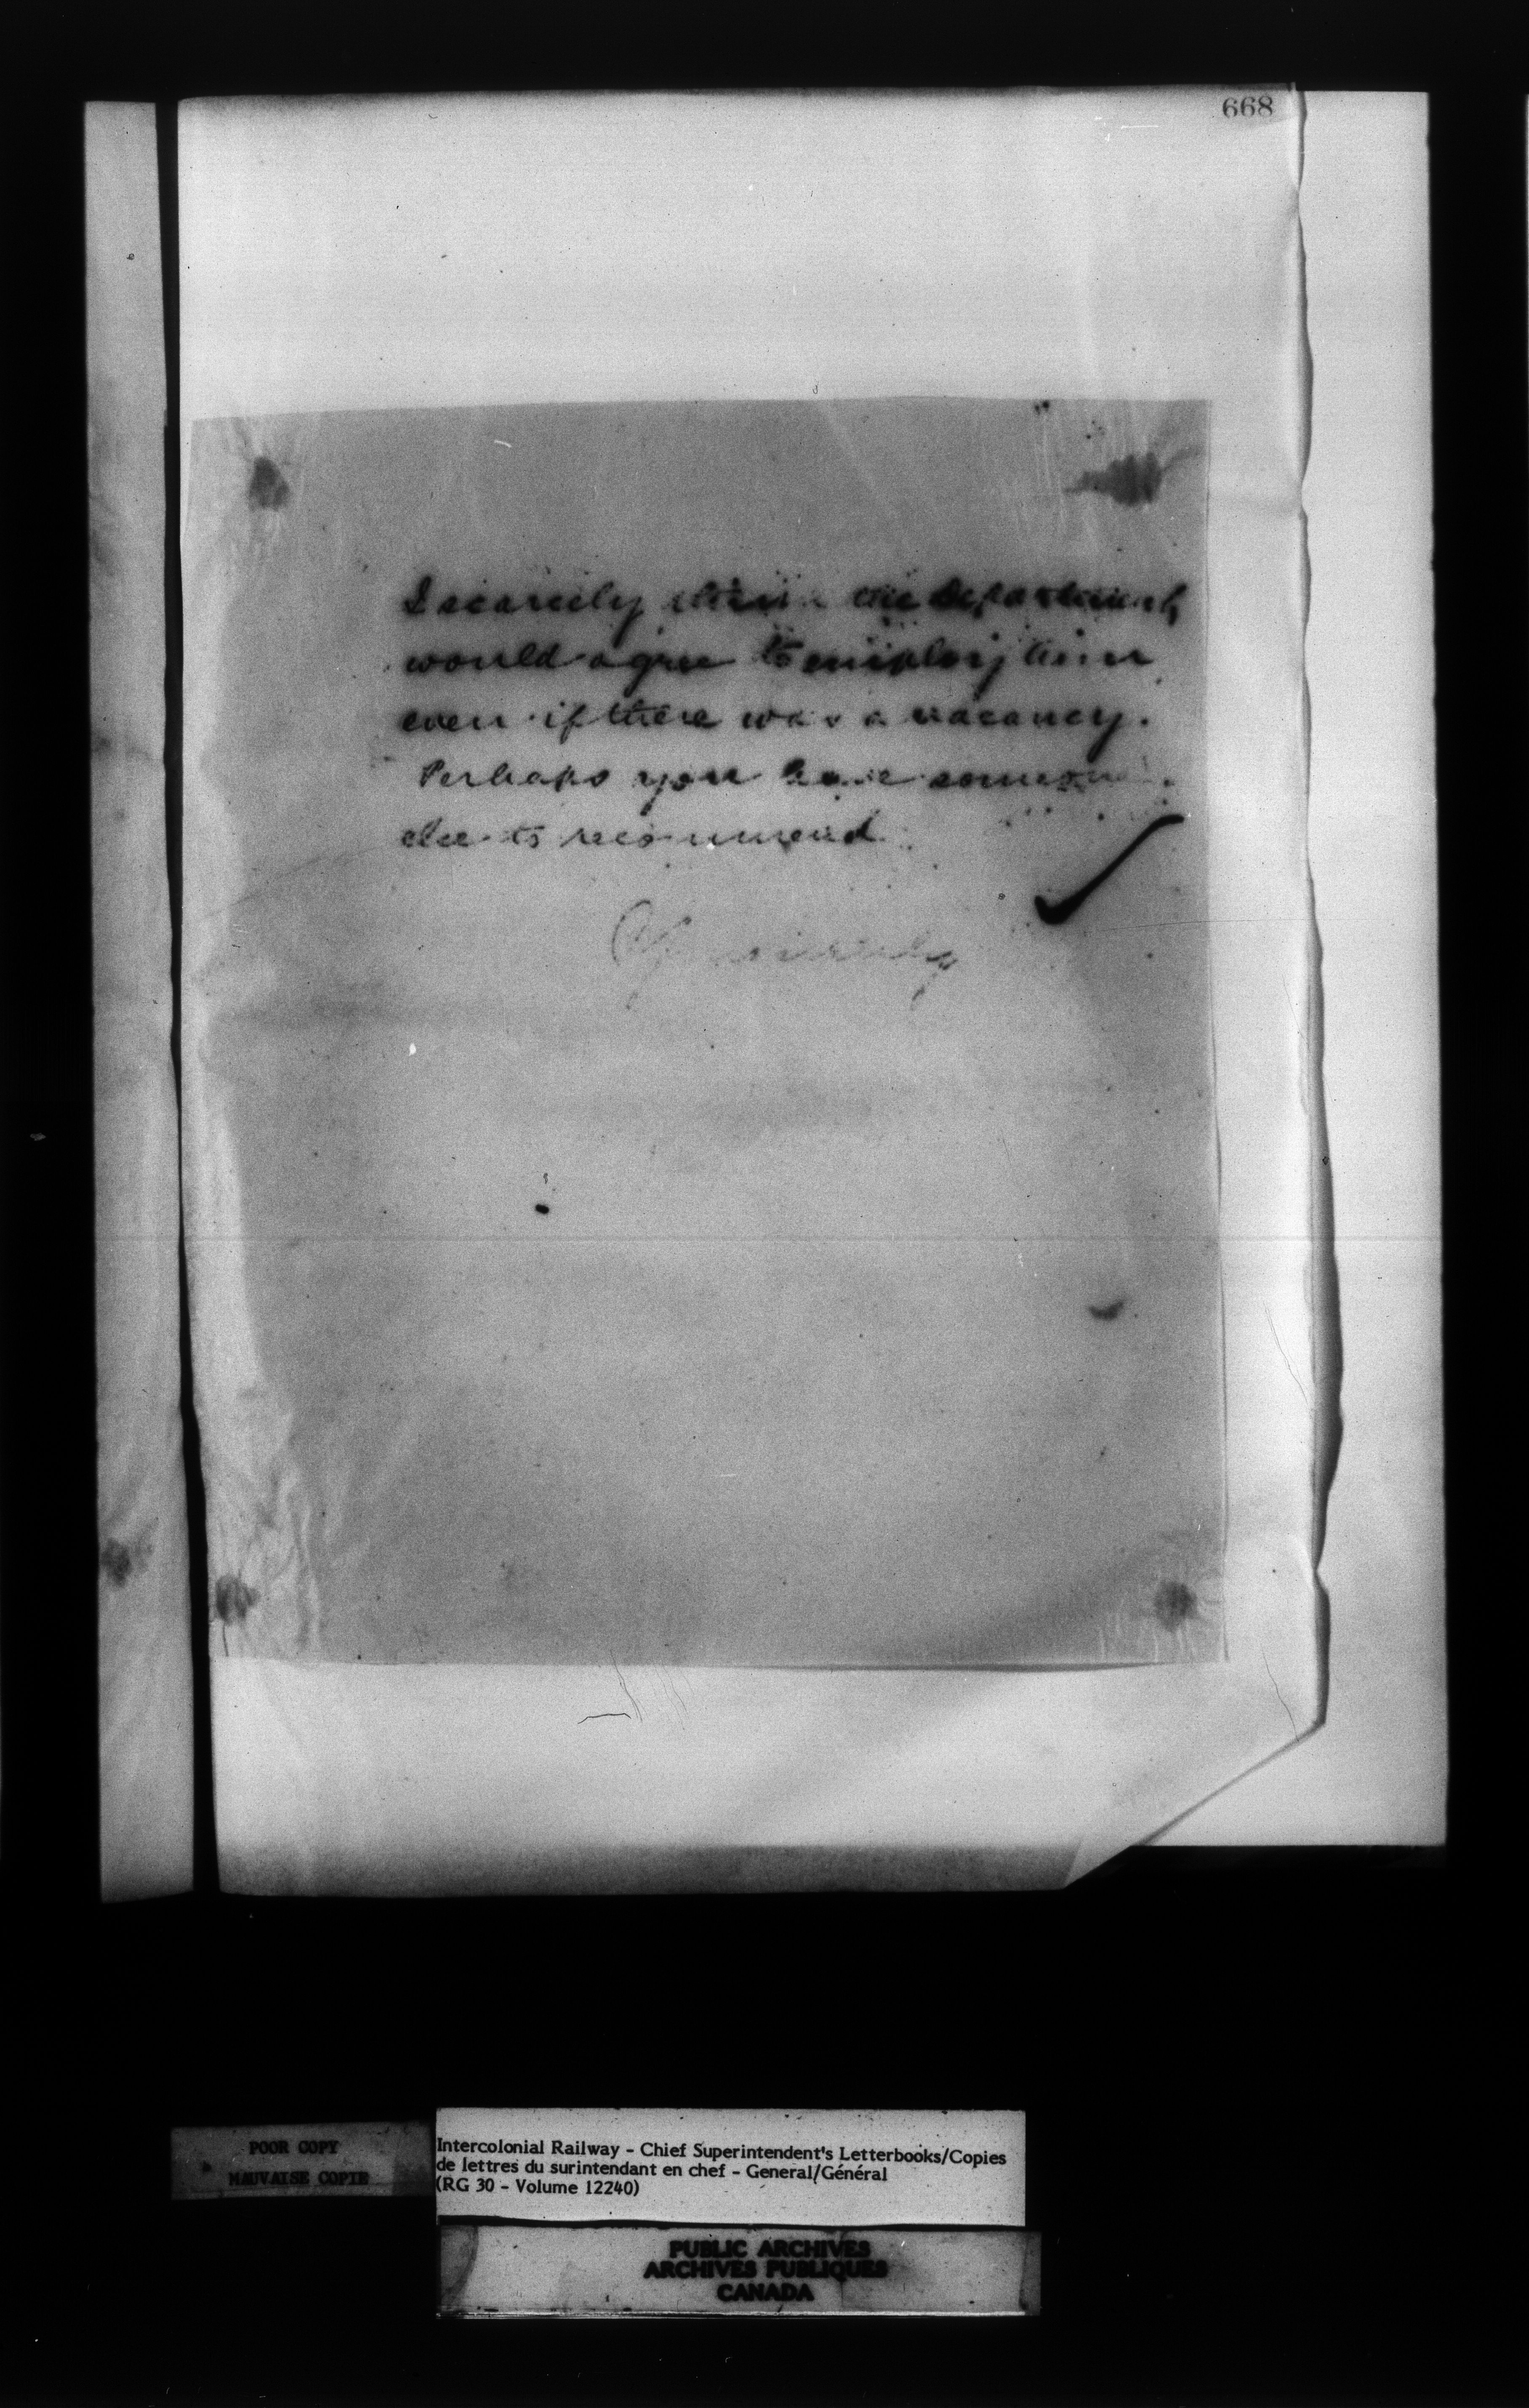 668
I scarcely think the Department
would agree to employ him
even if there was a vacancy.
Perhaps you have someone
else to recommend.
Yours sincerely
POOR COPY
MAUVAISE COPIE
Intercolonial Railway - Chief Superintendent's Letterbooks/Copies
de lettres du surintendant en chef - General/Général
(RG 30 - Volume 12240)
PUBLIC ARCHIVES
ARCHIVES PUBLIQUES
CANADA